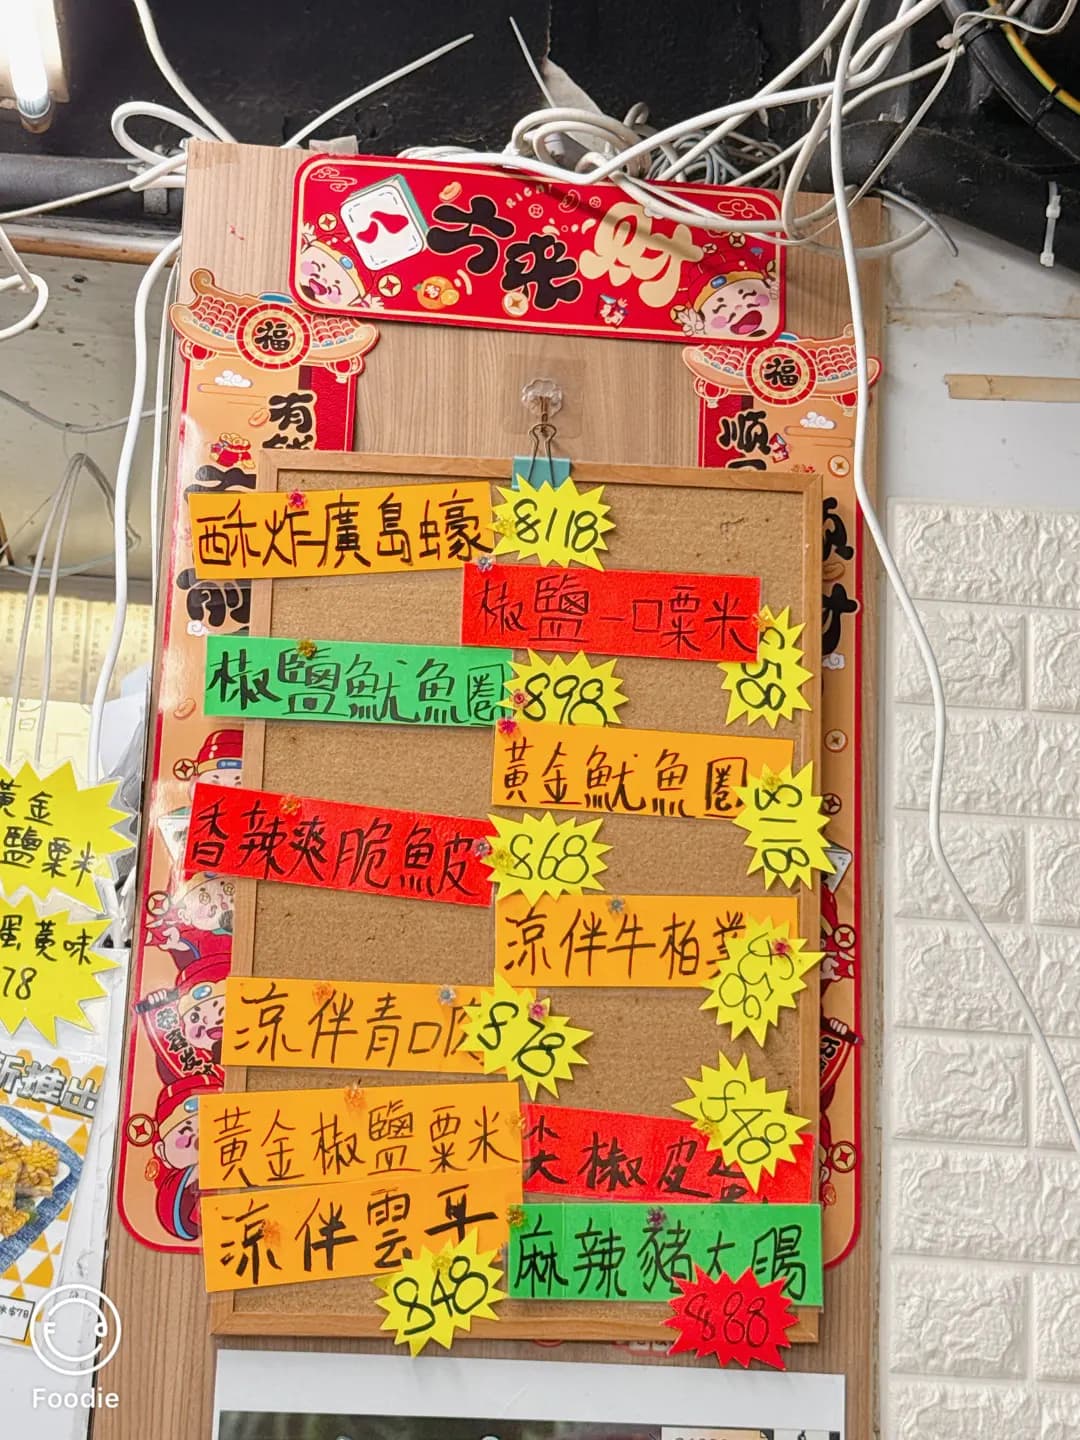 八方來財
RICH
福
福
有
順
前
酥炸廣島蠔
$118
椒鹽一口粟米
$58
椒鹽魷魚圈
$98
黃金魷魚圈
$118
香辣爽脆魚皮
$68
涼伴牛柏葉
涼伴青口
$78
黃金椒鹽粟米
尖椒皮蛋
$48
涼伴雲耳
$48
麻辣豬大腸
$88
黃金
鹽粟米
蛋黃味
78
新推出
Foodie